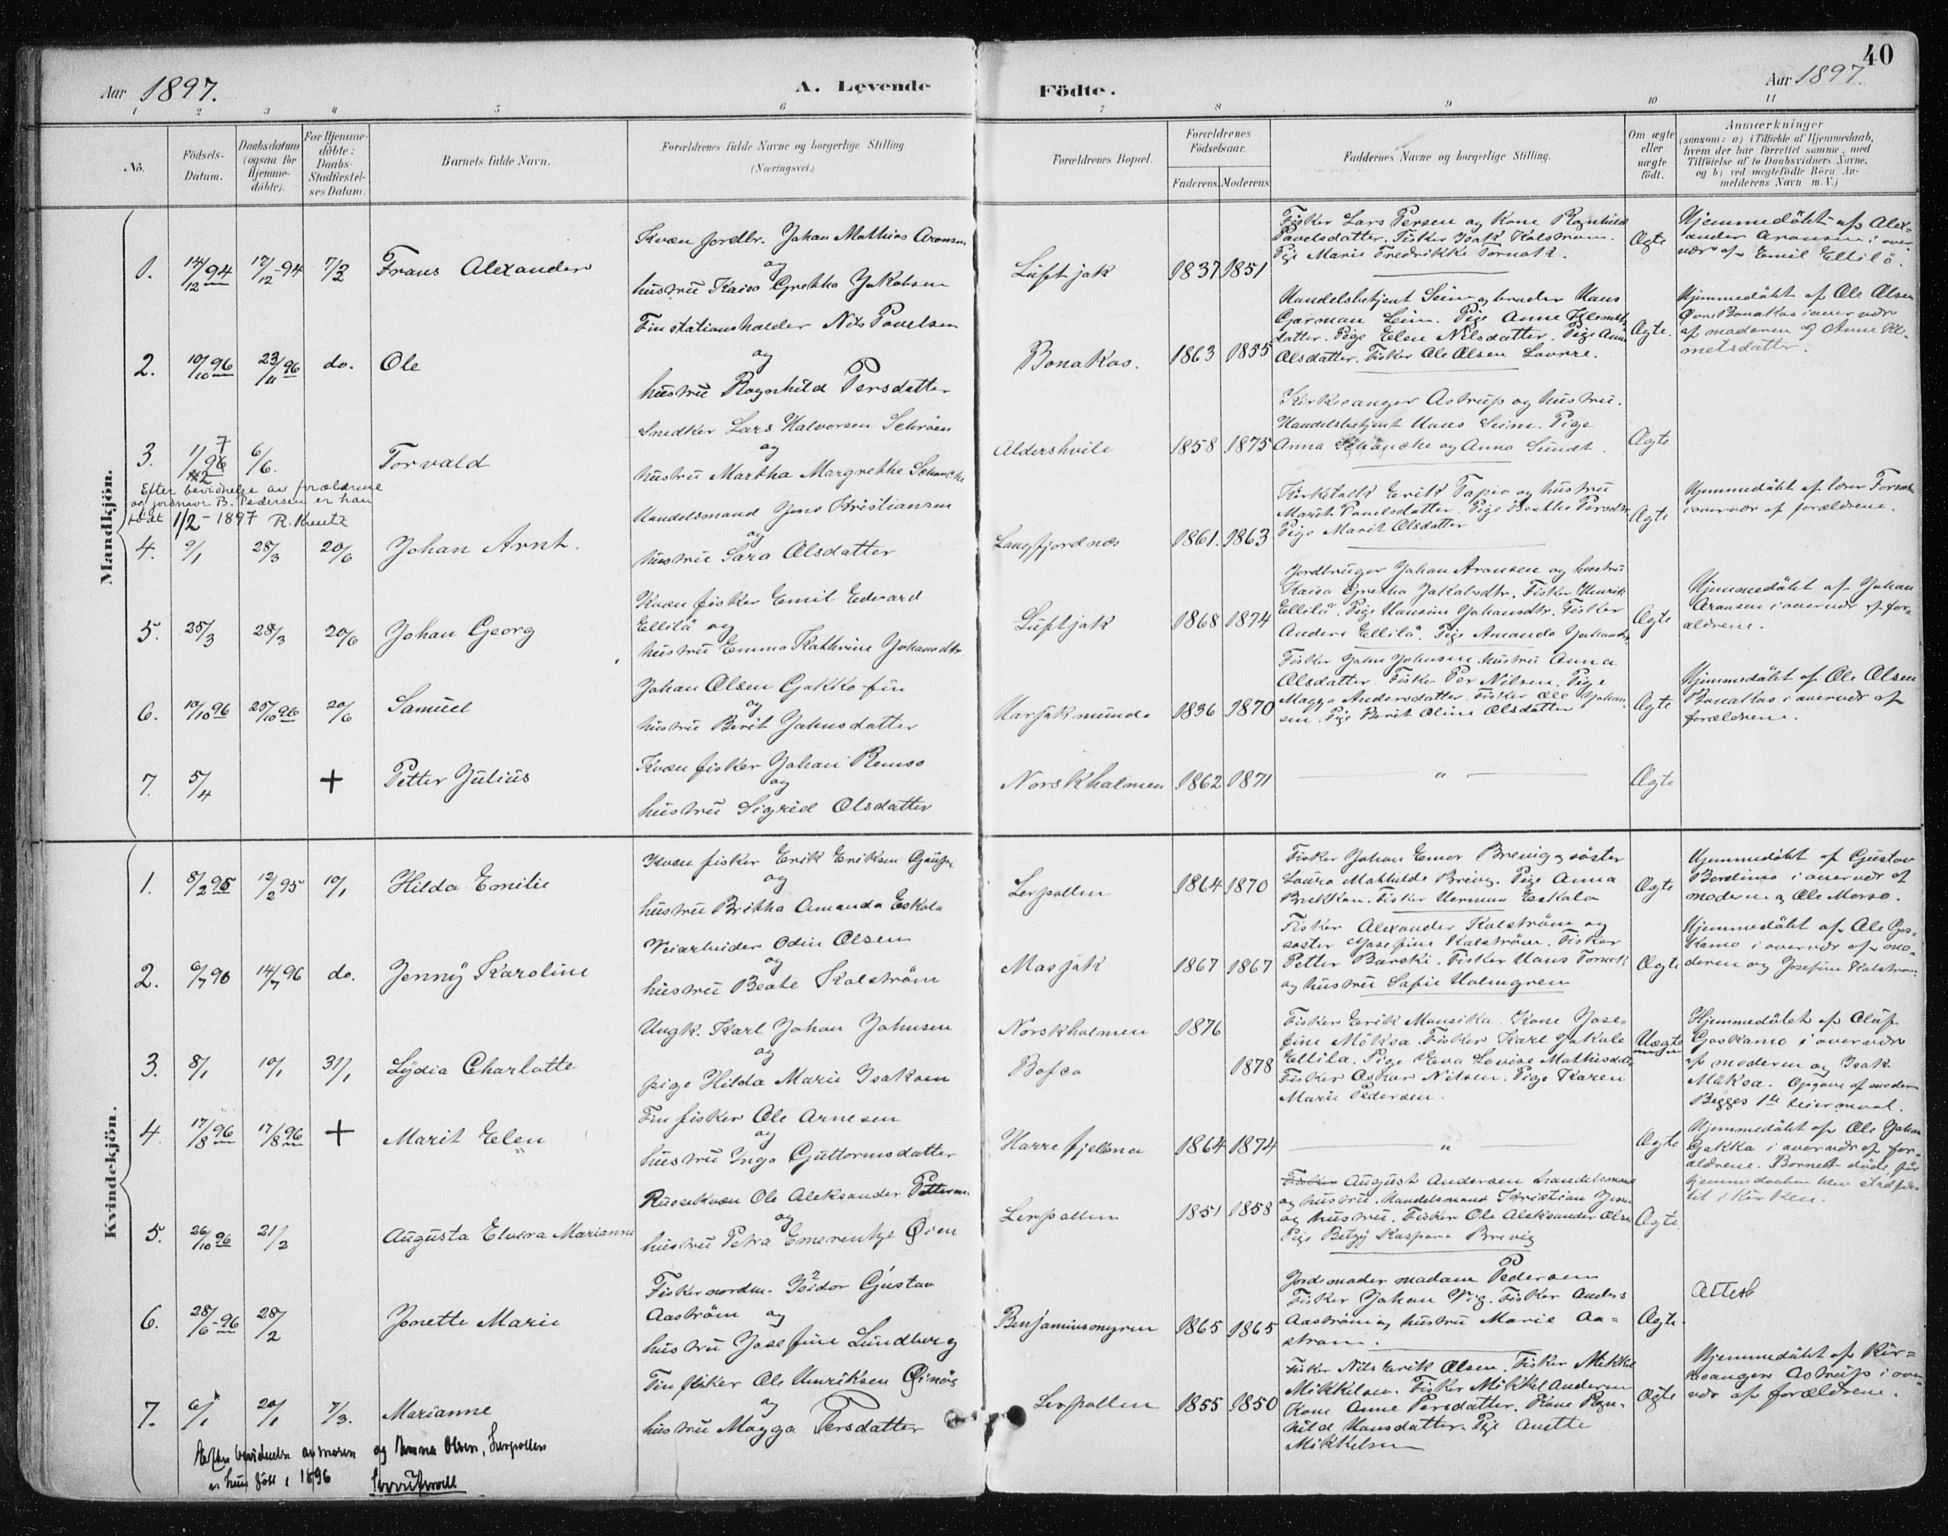 40
Aar 1897.
A. Levende
Födte.
Aar 1897.
1 2 3 4 5 6 7 8 9 10 11
No.
Födsels-
Datum.
Daabsdatum
(ogsaa for
Hjemme-
döbte).
For Hjemme-
döbte:
Daabs-
Stadfæstel-
ses Datum.
Barnets fulde Navn.
Forældrenes fulde Navne og borgerlige Stilling.
(Næringsvei.)
Forældrenes Bopæl.
Forældrenes
Födselsaar.
Faderens. Moderens.
Faddernes Navne og borgerlige Stilling.
Om ægte
eller
uægte
födt.
Anmærkninger
(saasom: a) i Tilfælde af Hjemmedaab,
hvem der har forrettet samme, med
Tilföielse af to Daabsvidners Navne,
og b) ved uægtefödte Börn An-
melderens Navn m. V.)
Mandkjön.
1. 14/12 94 17/12-94 7/3 Frans Alexander
Kvæn jordbr. Johan Mathias Aronsen
og
hustru Kaisa Gretha Jakobsen
Luftjok 1837 1851
Fisker Lars Persen og Kone Ragnhild
Pavelsdatter. Fisker Isak Kalstrøm.
Pige Marie Fredrikke Tornok.
Ægte
Hjemmedøbt af Alex-
ander Aronsen i over-
vær af Emil Ellilä.
2. 10/10 96 23/11 96 do. Ole
Fin stationsholder Nils Povelsen
og
hustru Ragnhild Persdatter
Bonakas. 1863 1855
Handelsbetjent Seim og broder Hans
Garman Seim. Pige Anne Klemets-
datter. Pige Elen Nilsdatter. Pige Anne
Olsdatter. Fisker Ole Olsen Lavrre.
Ægte.
Hjemmedøbt af Ole Olsen
Øvre Bonakas i overvær
af moderen og Anne Kle-
metsdatter.
3. 6/6. Torvald
Snedker Lars Halvorsen Schrøen
og
hustru Martha Margrethe Schanche
Aldershvile 1858 1875
Kirkesanger Astrup og hustru.
Handelsbetjent Hans Seim. Pige
Anna Schanche og Anna Sundt.
Ægte
Efter bevidnelse av forældrene
og jordmor B. Pedersen er han
født 1/2 - 1897 R. Kreutz
4. 9/1 28/3 20/6 Johan Arnt.
Handelsmand Jens Kristiansen
og
hustru Sara Olsdatter
Langfjordnæs 1861. 1863
Kirketolk Erik Tapio og hustru
Marit Pavelsdatter. Pige Berthe Persdtr.
Pige Marit Olsdatter
Ægte
i overvær af forældrene.
5. 25/3 28/3 20/6 Johan Georg
Kvæn fisker Emil Edvard
Ellilä og
hustru Emma Kathrine Johansdtr
Luftjok 1868 1874
Jordbruger Johan Aronsen og hustru
Kaisa Gretha Jakobsdtr. Fisker Henrik
Ellilä. Pige Hansine Johansdtr. Fisker
Anders Ellilä. Pige Amanda Johansdtr.
Ægte
Hjemmedøbt af Johan
Aronsen i overvær af for-
ældrene.
6. 10/10 96 25/10 96 20/6 Samuel
Johan Olsen Gakko fin
og
hustru Berit Johnsdatter
Harsjokmunde 1836 1870
Fisker John Johnsen hustru Anna
Olsdatter. Fisker Per Nilsen. Pige
Magga Andersdatter. Fisker Ole Johan-
sen. Pige Berit Oline Olsdatter
Ægte
Hjemmedøbt af Ole Olsen
Bonakas i overvær af
forældrene.
7. 5/4 + Petter Julius
Kvæn fisker Johan Remso
og
hustru Sigrid Olsdatter
Norskholmen 1862 1871
— „ —
Ægte
Kvindekjön.
1. 8/2 95 12/2 95 10/1 Hilda Emilie
Kvæn fisker Erik Eriksen
og
hustru Britha Amanda Eskola
Lerpollen 1864 1870
Fisker Johan Emor Brevig og søster
Laura Mathilde Brevig. Pige Anna
Brekken. Fisker Herman Eskola
Ægte
Hjemmedøbt af Gustav
i overvær af
moderen og Ole Morso.
2. 6/7 96 14/7 96 do. Jenny Karoline
Veiarbeider Odin Olsen
og
hustru Beate Kalström
Masjok 1867 1867
Fisker Alexander Kalström og
søster Josefine Kalström. Fisker
Petter Barski. Fisker Hans Tornok
og hustru Sofie Holmgren
Ægte
Hjemmedøbt af Ole Gos-
kamo i overvær af mo-
deren og Josefine Kalstrøm.
3. 8/1 10/1 31/1 Lydia Charlotte
Ungk. Karl Johan Johnsen
og
pige Hilda Marie Isaksen
Norskholmen 1876
Bofca 1878
Fisker Erik Mansika. Kone Jose-
fine Mäksa. Fisker Karl Jakola
Ellila. Pige Eva Lovise Mathisdtr.
Fisker Oskar Nilsen. Pige Karen
Marie Pedersen.
Uægte
Hjemmedøbt af Oluf
Goskamo i overvær
af moderen og Isak
Mäksa. Opgave af moder.
Begges 1ste leiermaal.
4. 17/8 96 17/8 96 + Marit Elen
Fin fisker Ole Arnesen
og
hustru Inga Guttormsdatter
Harrefjellnes 1864 1874
— „ —
Ægte
Hjemmedøbt af Ole Johan
Gakka i overvær af for-
ældrene. Barnet døde før
hjemmedaaben blev stadfæs-
tet i kirken.
5. 26/10 96 21/2 Augusta Elvira Marianne
Russekvæn Ole Aleksander Pettersen
og
hustru Petra Emerentze Øien
Lerpollen 1851 1858
Fisker August Andersen handelsmand
og hustru. Handelsmand Kristian Jens.
og hustru. Fisker Ole Aleksander Olsen
Pige Betzy Kaspara Brevig
Ægte.
6. 28/6-96 28/2 Jonette Marie
Fisker nordm. Isidor Gustav
Aaström og
hustru Josefine Lundberg
Benjaminsmyren 1865 1865
Jordemoder madam Pedersen
Fisker Johan Vig. Fisker Anders
Aaström og hustru Marie Aa-
ström.
Ægte.
Attest
7. 6/1 20/1 7/3. Marianne
Fin fisker Ole Henriksen Øinæs
og
hustru Magga Persdatter
Lerpollen 1855 1850
Fisker Nils Erik Olsen. Fisker Mikkel
Mikkelsen. Fisker Mikkel Andersen
Kone Anne Persdatter. Kone Ragn-
hild Hansdatter. Pige Anette
Mikkelsen
Ægte
Hjemmedøbt af Kir-
kesanger Astrup i over-
vær af forældrene.
Efter bevidnelse av moren og Anna Olsen, Lerpollen
er hun født i 1896